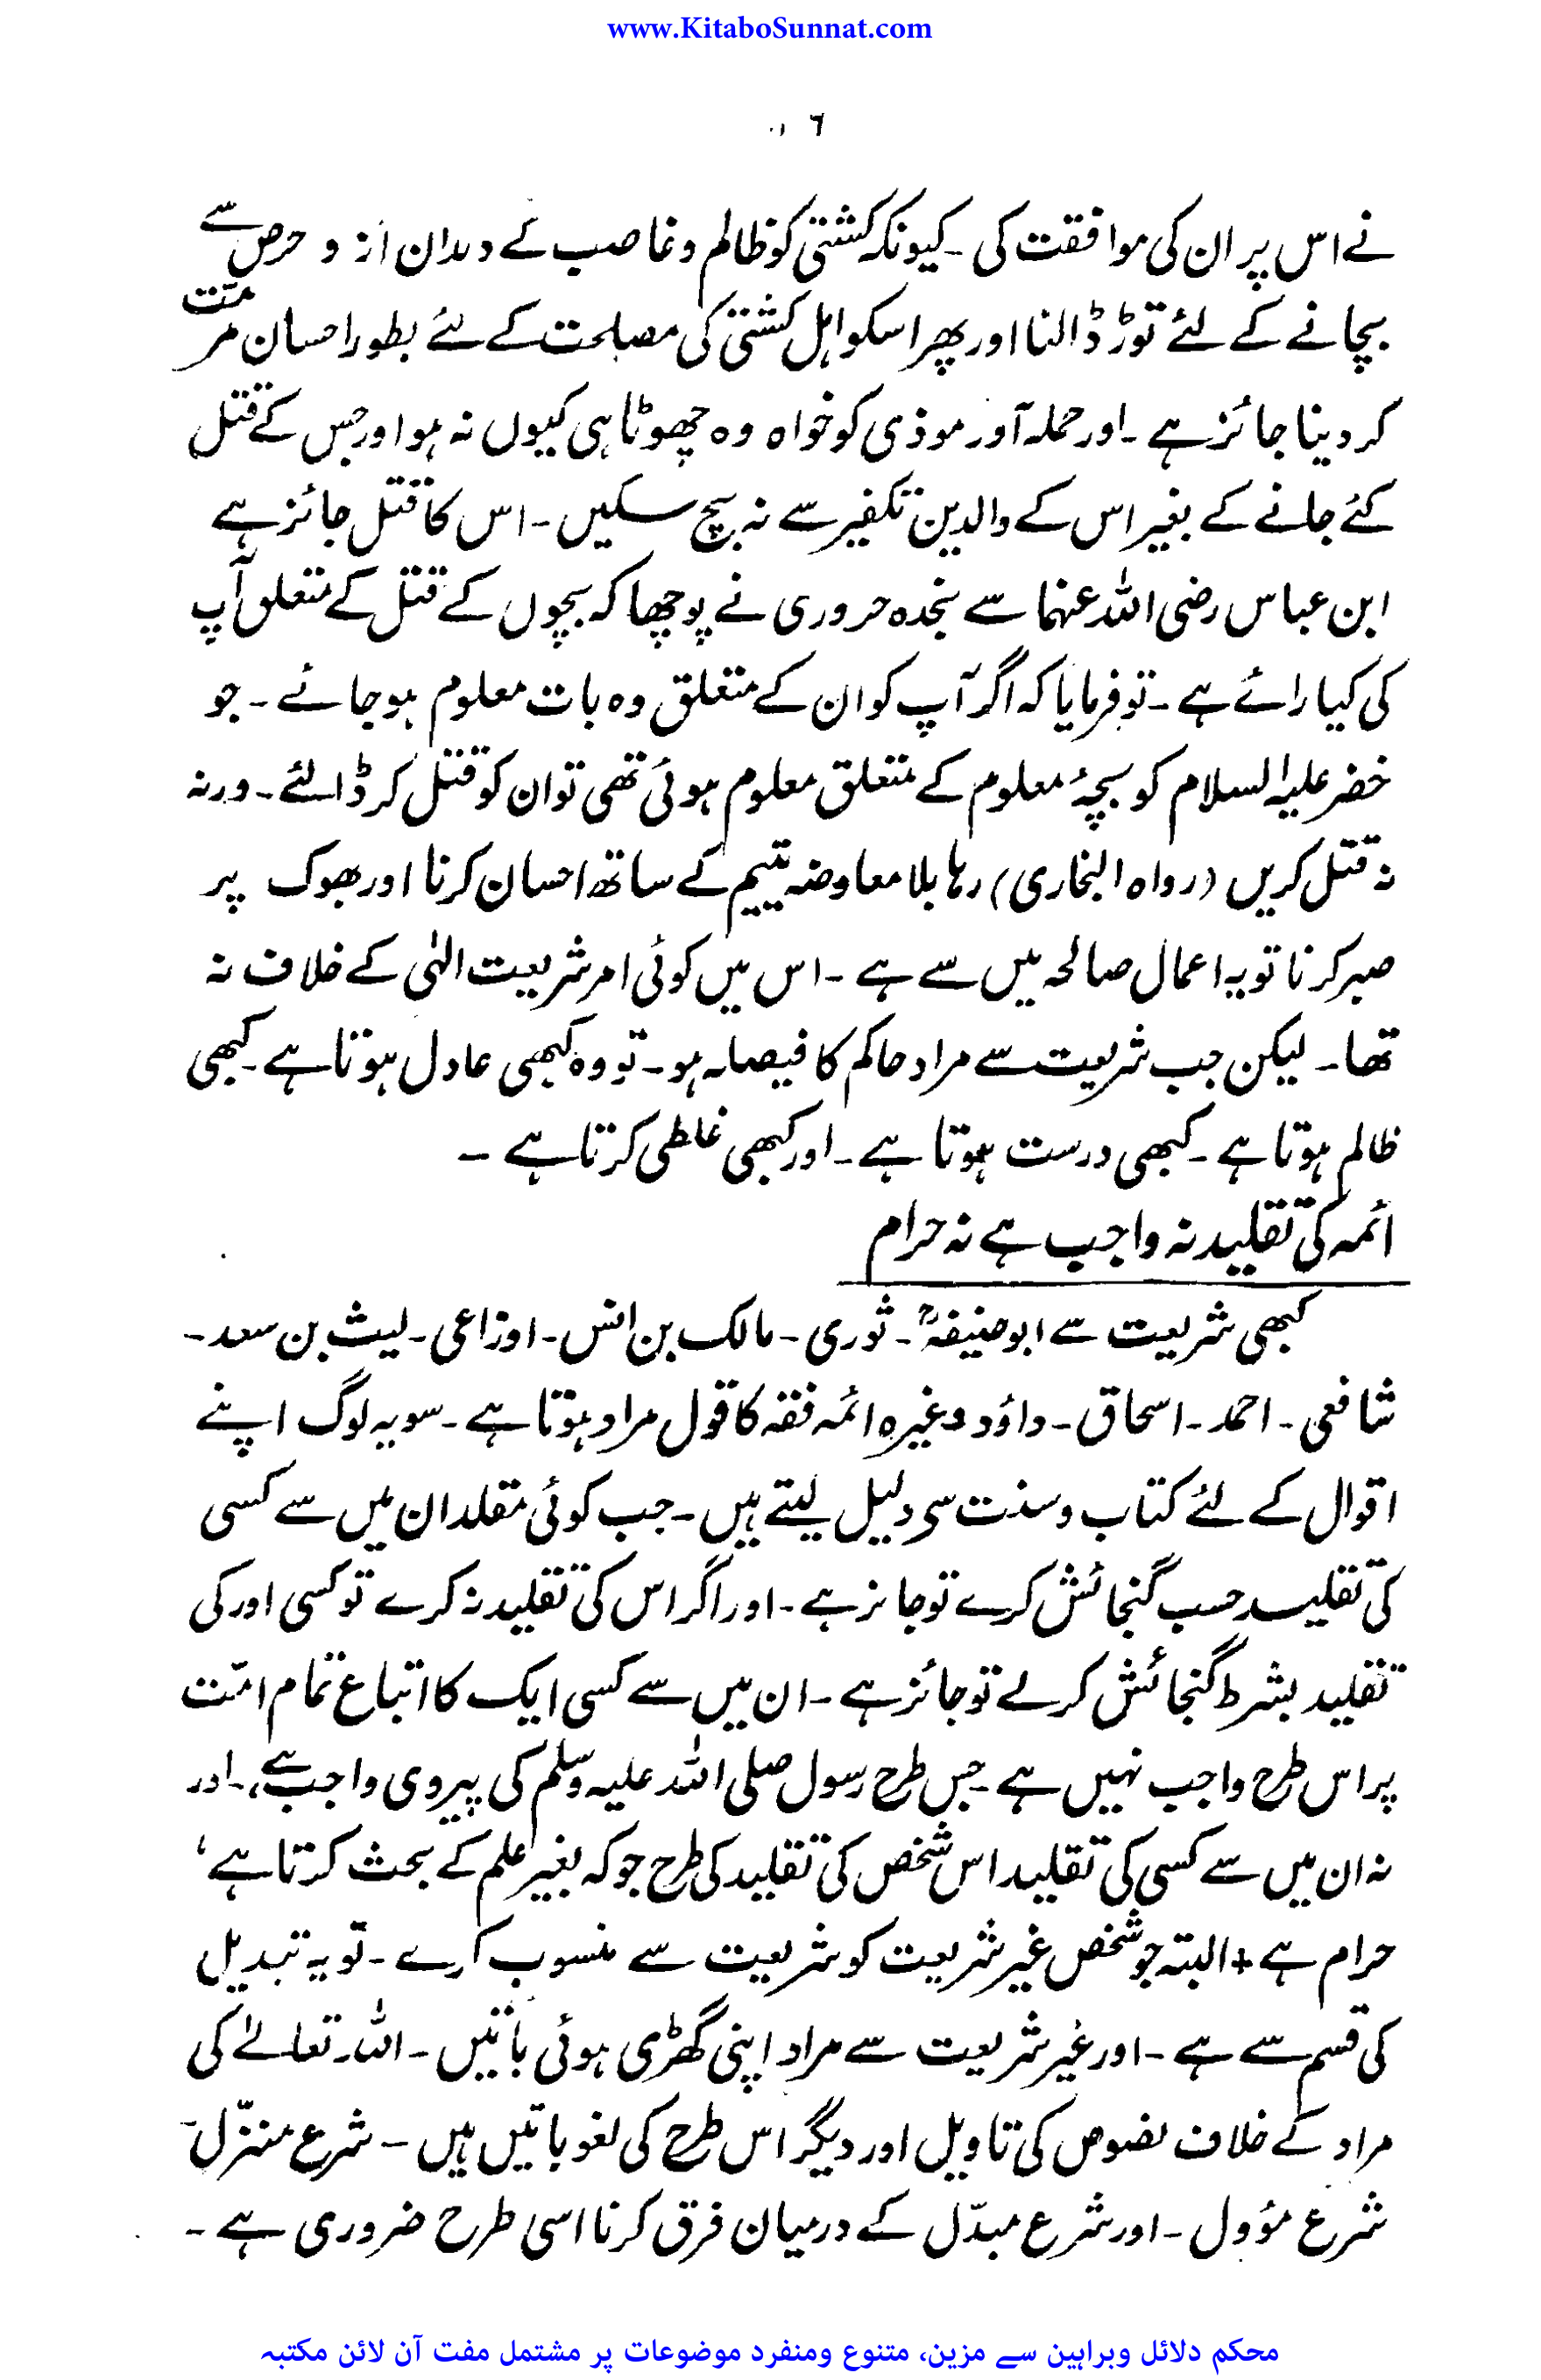 www.KitaboSunnat.com
نے اس پر ان کی موافقت کی ۔ کیونکہ کشتی کو ظالم و غاصب کے دندان آز و حرص سے
بچانے کے لئے توڑ ڈالنا اور پھر اسکو اہل کشتی کی مصلحت کے لئے بطور احسان مرمت
کر دینا جائز ہے ۔ اور حملہ آور موذی کو خواہ وہ چھوٹا ہی کیوں نہ ہو اور جس کے قتل
کئے جانے کے بغیر اس کے والدین تکفیر سے نہ بچ سکیں ۔ اس کا قتل جائز ہے
ابن عباس رضی اللہ عنہما سے نجدہ حروری نے پوچھا کہ بچوں کے قتل کے متعلق آپ
کی کیا رائے ہے ۔ تو فرمایا کہ اگر آپ کو ان کے متعلق وہ بات معلوم ہو جائے ۔ جو
خضر علیہ السلام کو بچۂ معلوم کے متعلق معلوم ہوئی تھی تو ان کو قتل کر ڈالئے ۔ ورنہ
نہ قتل کریں (رواہ البخاری) رہا بلا معاوضہ یتیم کے ساتھ احسان کرنا اور بھوک پر
صبر کرنا تو یہ اعمال صالحہ میں سے ہے ۔ اس میں کوئی امر شریعت الٰہی کے خلاف نہ
تھا ۔ لیکن جب شریعت سے مراد حاکم کا فیصلہ ہو ۔ تو وہ کبھی عادل ہوتا ہے ۔ کبھی
ظالم ہوتا ہے ۔ کبھی درست ہوتا ہے ۔ اور کبھی غلطی کرتا ہے ۔
ائمہ کی تقلید نہ واجب ہے نہ حرام
کبھی شریعت سے ابو حنیفہؒ ۔ ثوری ۔ مالک بن انس ۔ اوزاعی ۔ لیث بن سعد ۔
شافعی ۔ احمد ۔ اسحاق ۔ داؤد وغیرہ ائمہ فقہ کا قول مراد ہوتا ہے ۔ سو یہ لوگ اپنے
اقوال کے لئے کتاب و سنت سی دلیل لیتے ہیں ۔ جب کوئی مقلد ان میں سے کسی
کی تقلید حسب گنجائش کرے تو جائز ہے ۔ اور اگر اس کی تقلید نہ کرے تو کسی اور کی
تقلید بشرط گنجائش کر لے تو جائز ہے ۔ ان میں سے کسی ایک کا اتباع تمام امّت
پر اس طرح واجب نہیں ہے ۔ جس طرح رسول صلی اللہ علیہ وسلم کی پیروی واجب ہے، ۔ اور
نہ ان میں سے کسی کی تقلید اس شخص کی تقلید کی طرح جو کہ بغیر علم کے بحث کرتا ہے ،
حرام ہے + البتہ جو شخص غیر شریعت کو شریعت سے منسوب کرے ۔ تو یہ تبدیل
کی قسم سے ہے ۔ اور غیر شریعت سے مراد اپنی گھڑی ہوئی باتیں ۔ اللہ تعالےٰ کی
مراد کے خلاف نصوص کی تاویل اور دیگر اس طرح کی لغو باتیں ہیں ۔ شرع منزّل ۔
شرع مؤول ۔ اور شرع مبدّل کے درمیان فرق کرنا اسی طرح ضروری ہے ۔
محکم دلائل وبراہین سے مزین، متنوع ومنفرد موضوعات پر مشتمل مفت آن لائن مکتبہ